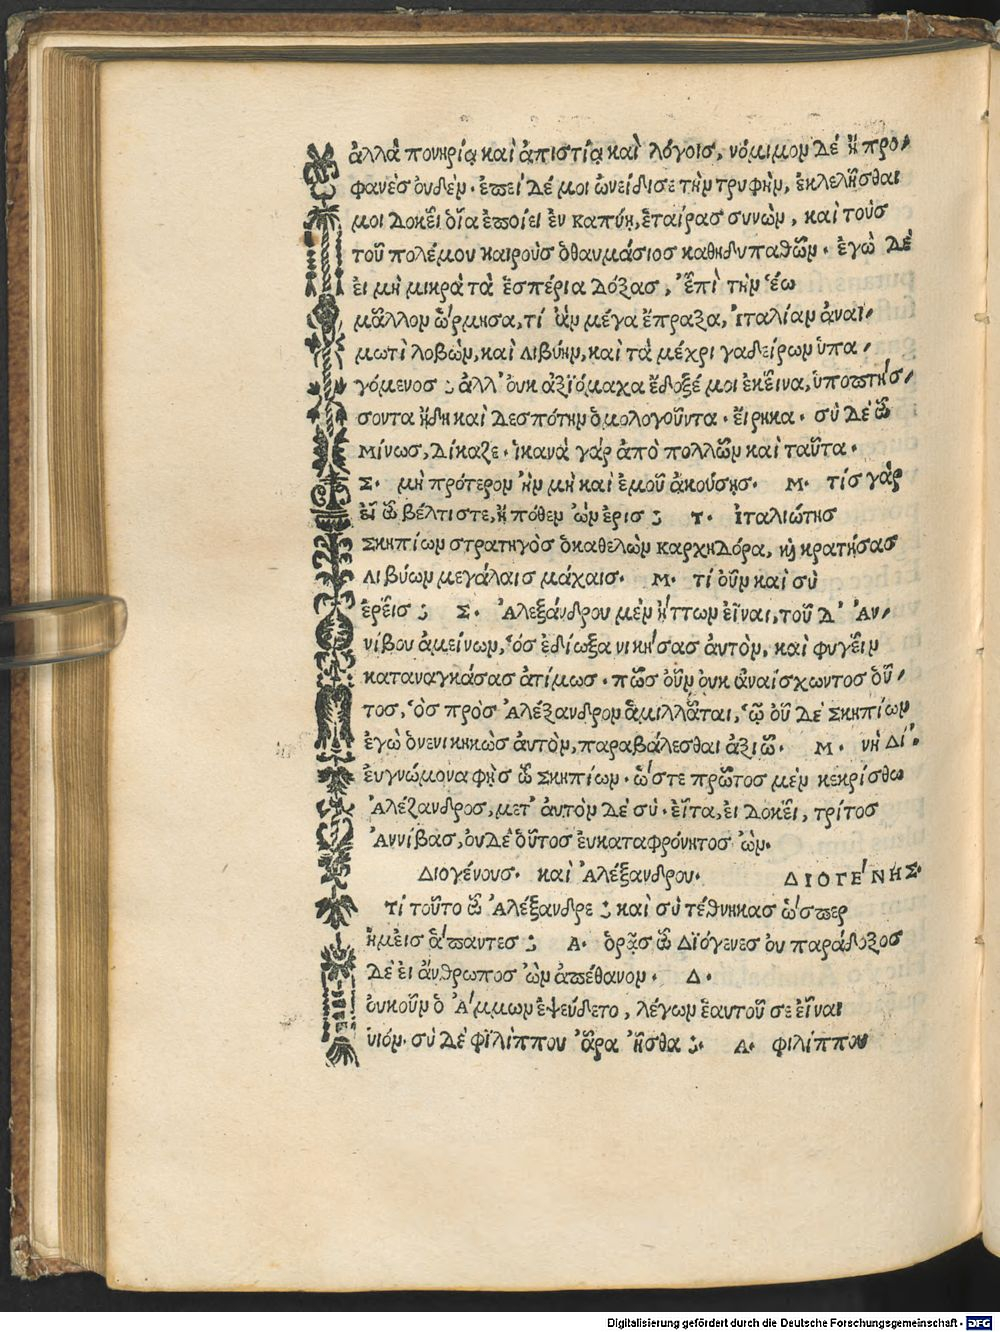 ἀλλὰ πονηρίᾳ καὶ ἀπιστίᾳ καὶ λόγοις, νόμιμον δὲ ἢ προ-
φανὲς οὐδέν. ἐπεὶ δέ μοι ὠνείδισε τὴν τρυφὴν, ἐκλελῆσθαι
μοι δοκεῖ οἷα ἐποίει ἐν καπύῃ, ἑταίρας συνὼν, καὶ τοὺς
τοῦ πολέμου καιροὺς ὁ θαυμάσιος καθηδυπαθῶν. ἐγὼ δὲ
εἰ μὴ μικρὰ τὰ ἑσπέρια δόξας, ἐπὶ τὴν ἕω
μᾶλλον ὥρμησα, τί ἂν μέγα ἔπραξα, Ἰταλίαν ἀναι-
μωτὶ λαβὼν, καὶ λιβύην, καὶ τὰ μέχρι γαδείρων ὑπα-
γόμενος; ἀλλ' οὐκ ἀξιόμαχα ἔδοξέ μοι ἐκεῖνα, ὑποπτήσ-
σοντα ἤδη καὶ δεσπότην ὁμολογοῦντα. εἴρηκα. σὺ δὲ ὦ
Μίνως, δίκαζε. ἱκανὰ γὰρ ἀπὸ πολλῶν καὶ ταῦτα.
Σ. μὴ πρότερον ἢν μὴ καὶ ἐμοῦ ἀκούσῃς. Μ. τίς γὰρ
εἶ ὦ βέλτιστε, ἢ πόθεν ὢν ἐρεῖς; Τ. Ἰταλιώτης
Σκηπίων στρατηγὸς ὁ καθελὼν καρχηδόνα, καὶ κρατήσας
λιβύων μεγάλαις μάχαις. Μ. τί οὖν καὶ σὺ
ἐρεῖς; Σ. Ἀλεξάνδρου μὲν ἥττων εἶναι, τοῦ δ' Ἀν-
νίβου ἀμείνων, ὃς ἐδίωξα νικήσας αὐτὸν, καὶ φυγεῖν
καταναγκάσας ἀτίμως. πῶς οὖν οὐκ ἀναίσχυντος οὗ-
τος, ὃς πρὸς Ἀλέξανδρον ἁμιλλᾶται, ᾧ οὐ δὲ Σκηπίων
ἐγὼ ὁ νενικηκὼς αὐτὸν, παραβάλεσθαι ἀξιῶ. Μ. νὴ Δί'.
εὐγνώμονα φῂς ὦ Σκηπίων. ὥστε πρῶτος μὲν κεκρίσθω
Ἀλέξανδρος, μετ' αὐτὸν δὲ σύ. εἶτα, εἰ δοκεῖ, τρίτος
Ἀννίβας, οὐδὲ οὗτος εὐκαταφρόνητος ὤν.
Διογένους. καὶ Ἀλεξάνδρου. ΔΙΟΓΕΝΗΣ.
τί τοῦτο ὦ Ἀλέξανδρε; καὶ σὺ τέθνηκας ὥσπερ
ἡμεῖς ἅπαντες; Α. ὁρᾷς ὦ Διόγενες οὐ παράδοξος
δὲ εἰ ἄνθρωπος ὢν ἀπέθανον. Δ.
οὐκοῦν ὁ Ἄμμων ἐψεύδετο, λέγων ἑαυτοῦ σε εἶναι
υἱόν. σὺ δὲ φιλίππου ἄρα ἦσθα; Α. φιλίππου
Digitalisierung gefördert durch die Deutsche Forschungsgemeinschaft - DFG